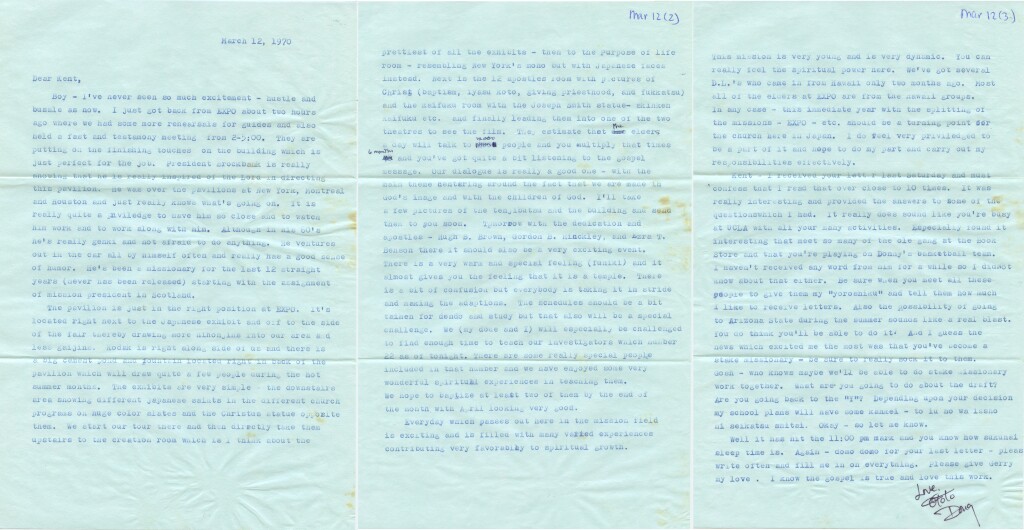 March 12, 1970
Dear Kent,
Boy - I've never seen so much excitement - hustle and
bussle as now. I just got back from EXPO about two hours
ago where we had some more rehearsals for guides and also
held a fast and testamony meeting from 2-5:00. They are
putting on the finishing touches on the building which is
just perfect for the job. President Brockbank is really
showing that he is really inspired of the Lord in directing
this pavilion. He was over the pavilions at New York, Montreal
and Houston and just really knows what's going on. It is
really quite a privledge to have him so close and to watch
him work and to work along with him. Although in his 60's
he's really genki and not afraid to do anything. He ventures
out in the car all by himself often and really has a good sense
of humor. He's been a missionary for the last 12 straight
years (never has been released) starting with the assignment
of mission president in Scotland.
The pavilion is just in the right position at EXPO. It's
located right next to the Japanese exhibit and off to the side
of the fair thereby drawing more nihonjins into our area and
less gaijins. Kodak is right along side of us and there is
a big cement pond and fountain located right in back of the
pavilion which will draw quite a few people during the hot
summer months. The exhibits are very simple - the downstairs
area showing different Japanese saints in the different church
programs on huge color slides and the Christus statue opposite
them. We start our tour there and then directly take them
upstairs to the creation room which is I think about the
Mar 12 (2)
prettiest of all the exhibits - then to the purpose of life
room - resembling New York's mono but with Japanese faces
instead. Next is the 12 apostles room with pictures of
Christ (baptism, Iyasu Koto, giving priesthood, and fukkatsu)
and the Kaifuku room with the Joseph Smith statue-
Kaifuku etc. and finally leading them into one of the two
theatres to see the film. The, estimate that the elders
day will talk to people and you multiply that times
6 months and you've got quite a bit listening to the gospel
message. Our dialogue is really a good one - with the
main theme centering around the fact that we are made in
God's image and with the children of God. I'll take
a few pictures of the tenjibutsu and the building and send
them to you soon. Tomorrow with the dedication and
apostles - Hugh B. Brown, Gordon B. Hinckley, and Ezra T.
Benson there it should also be a very exciting event.
There is a very warm and special feeling (funiki) and it
almost gives you the feeling that it is a temple. There
is a bit of confusion but everybody is taking it in stride
and making the adaptions. The schedules should be a bit
taihen for dendo and study but that also will be a special
challenge. We (my dode and I) will especially be challenged
to find enough time to teach our investigators which number
22 as of tonight. There are some really special people
included in that number and we have enjoyed some very
wonderful spiritual experiences in teaching them.
We hope to baptize at least two of them by the end of
the month with April looking very good.
Everyday which passes out here in the mission field
is exciting and is filled with many varied experiences
contributing very favorably to spiritual growth.
Mar 12 (3)
This mission is very young and is very dynamic. You can
really feel the spiritual power here. We've got several
D.L.'s who came in from Hawaii only two months ago. Most
all of the elders at EXPO are from the Hawaii groups.
In any case - this immediate year with the splitting of
the missions - EXPO - etc. should be a turning point for
the church here in Japan. I do feel very priviledged to
be a part of it and hope to do my part and carry out my
responsibilities effectively.
Kent - I received your letter last Saturday and must
confess that I read that over close to 10 times. It was
really interesting and provided the answers to some of the
questionswhich I had. It really does sound like you're busy
at UCLA with all your many activities. Especially found it
interesting that meet so many of the ole gang at the Book
Store and that you're playing on Donny's basketball team.
I haven't received any word from him for a while so I didnot
know about that either. Be sure when you meet all these
people to give them my "yoroshiku" and tell them how much
I like to receive letters. Also the possibility of going
to Arizona State during the summer sounds like a real blast.
You do think you'll be able to do it? And I guess the
news which excited me the most was that you've become a
stake missionary - be sure to really sock it to them.
Gosh - who knows maybe we'll be able to do stake missionary
work together. What are you going to do about the draft?
Are you going back to the "Y"? Depending upon your decision
my school plans will have some kankei - to iu no wa issho
ni seikatsu shitai. Okay - so let me know.
Well it has hit the 11:00 pm mark and you know how
sleep time is. Again - domo domo for your last letter - please
write often and fill me in on everything. Please give Gerry
my love . I know the gospel is true and love this work.
Love,
Doug